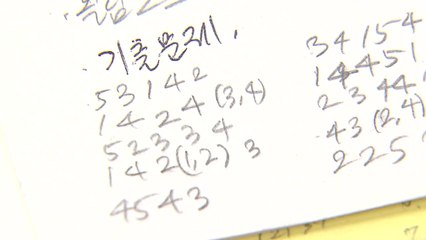 기출문제.
53142
1424(3,4)
52334
142(1,2) 3
4543
34154
14451
2344
43(2,4)
225